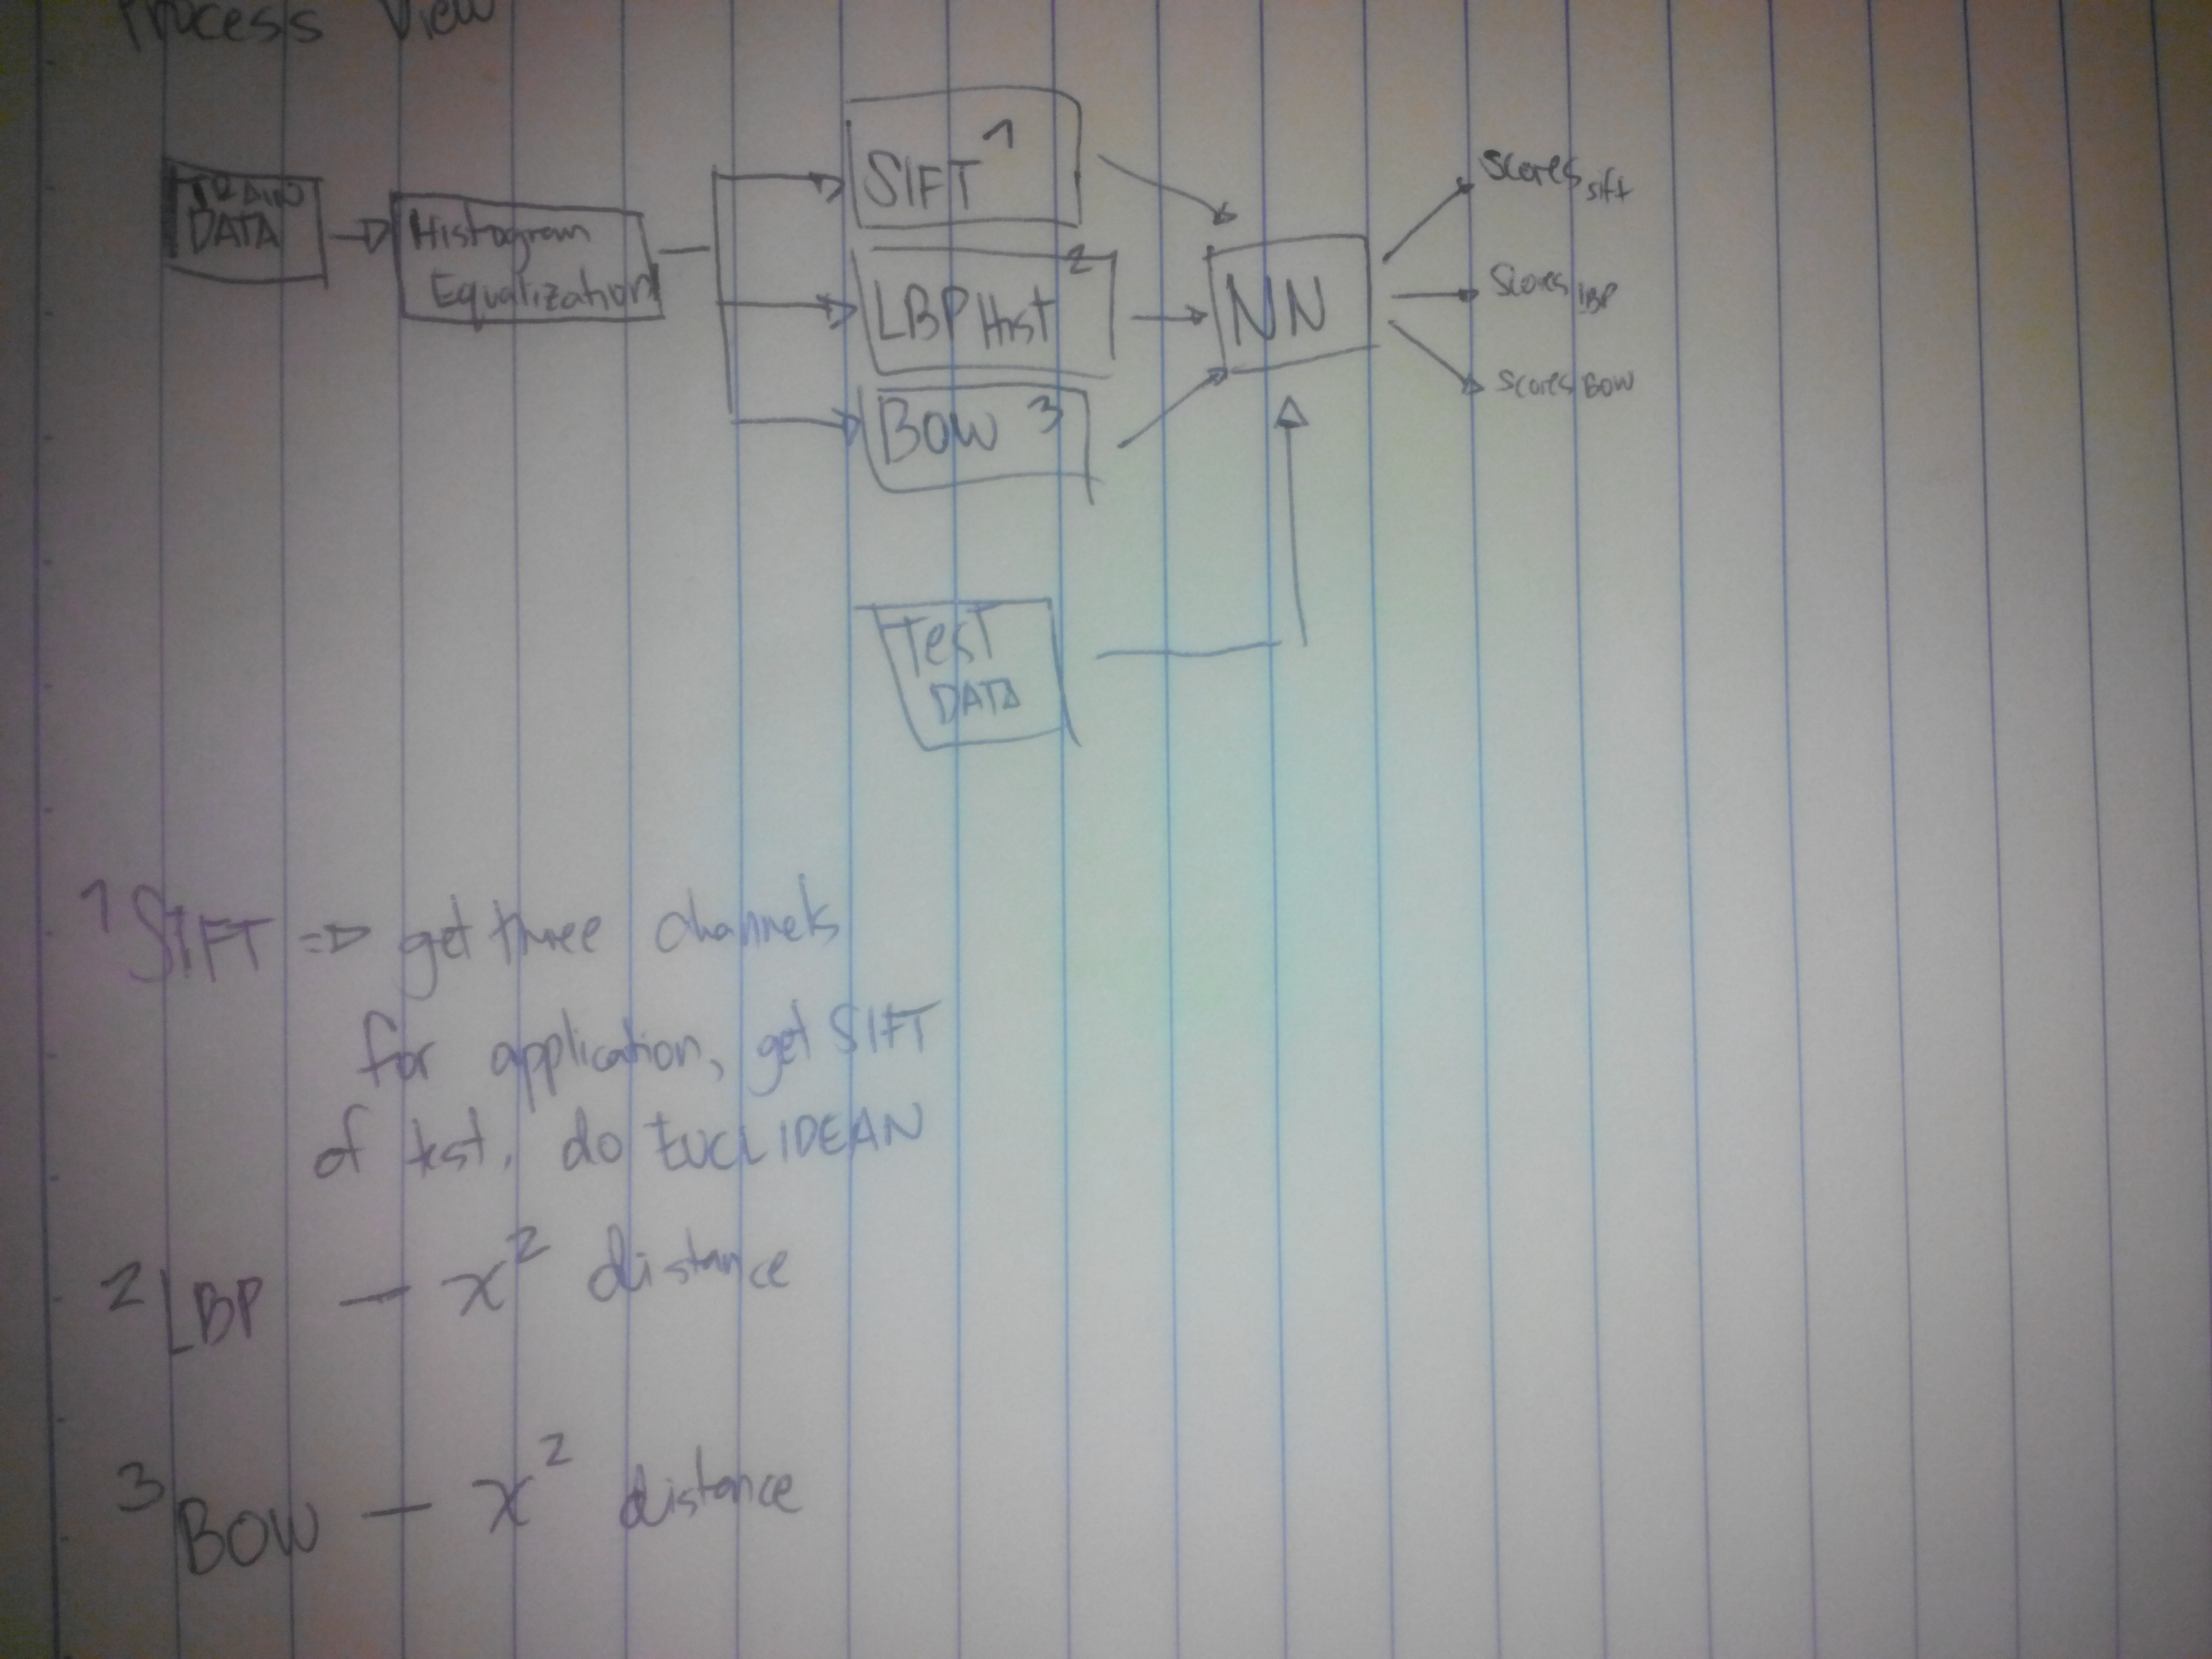 Process View
TRAIN
DATA
Histogram
Equalization
SIFT 1
LBP Hist 2
BOW 3
NN
Scores sift
Scores LBP
Scores BOW
Test
DATA
1 SIFT => get three channels
for application, get SIFT
of test. do EUCLIDEAN
2 LBP — x² distance
3 BOW — x² distance